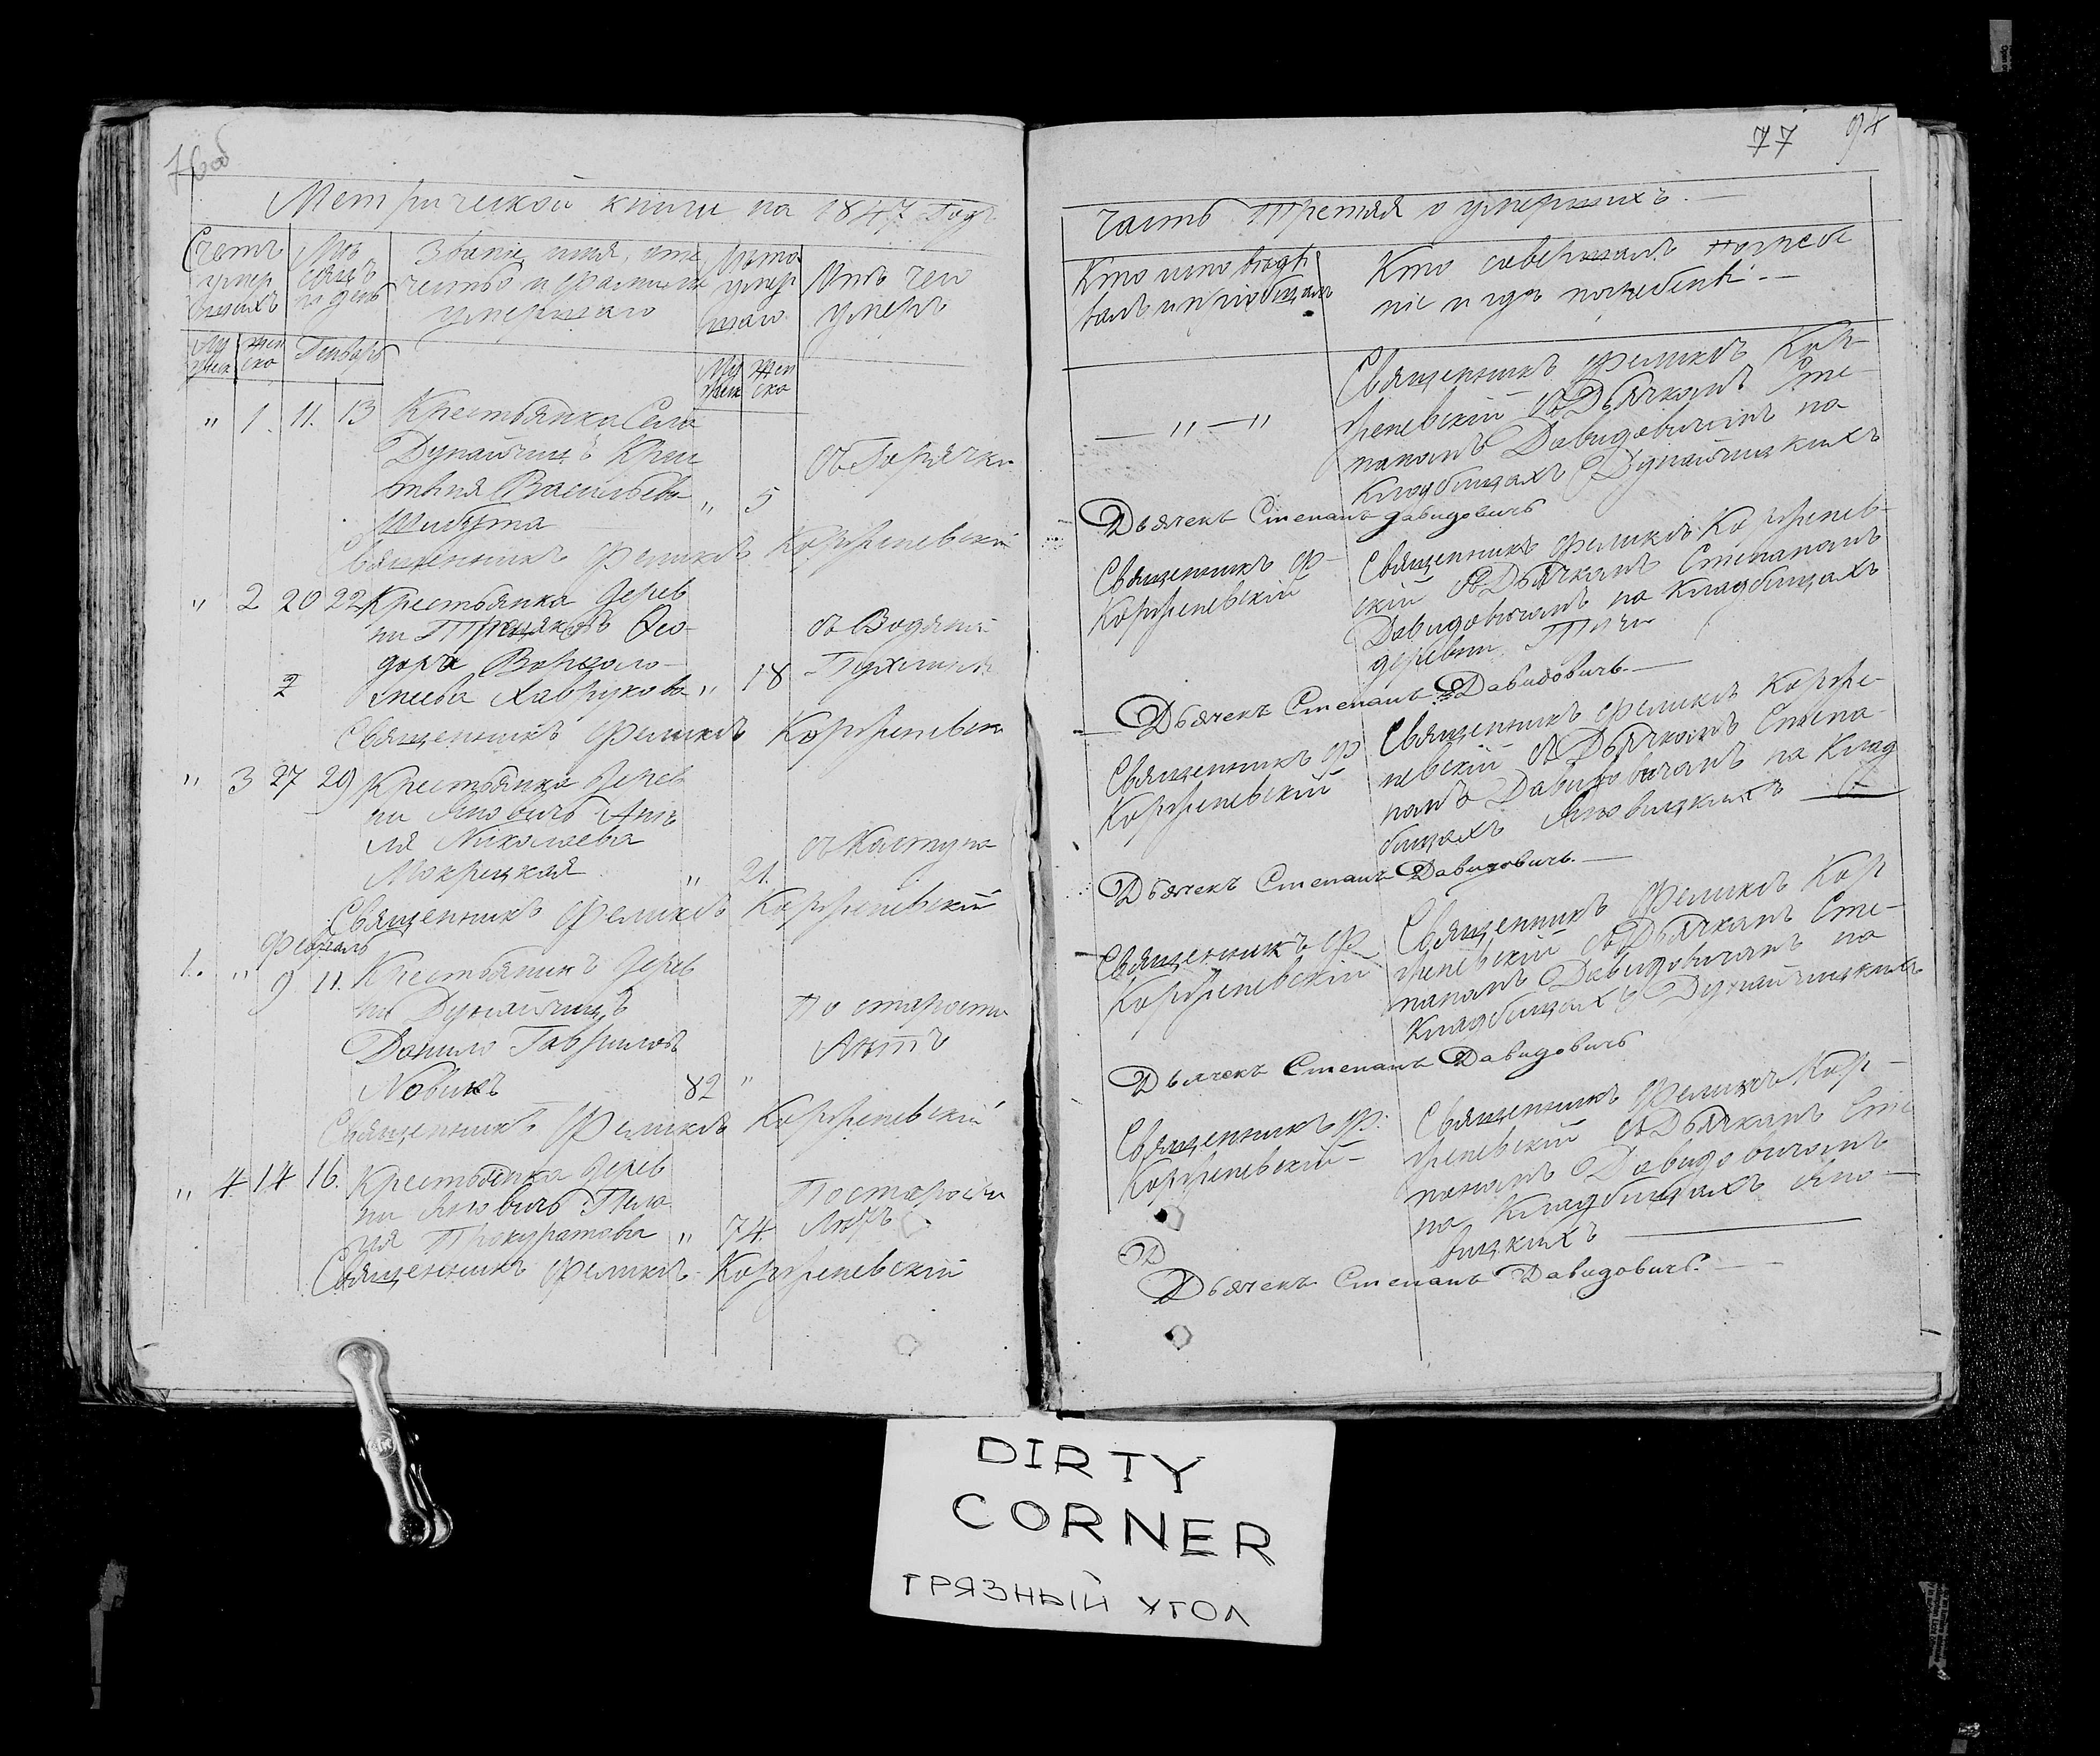 76об
Метрической книги на 1847 Годъ
Счетъ умер шихъ
Мѣ сяцъ и день
Званіе, имя, оте чество и фамилія умершаго
Лѣта умер шаго
Отъ чего умеръ
Му жеск
Жен ско
Генварь
Му жеск
Жен ско
" 1. 11. 13 Крестьянка Села
Дунайчицъ Крис
тына Васильева " 5 съ Горячки
Шибута
Священникъ Феликсъ Корженевскій
" 2 20 22 Крестьянка дерев
ни Ѳео-
дора Варѳоло- съ Водяной
2 меева Хаврукова " 18 Пухлины
Священникъ Феликсъ Корженевскі
" 3 27 29 Крестьянка дерев
ни Яновичь
ля Николаева съ Кастуна
Мокрицкая " 21.
Священникъ Феликсъ Корженевскій
Февраль
1. " 9 11. Крестьянинъ дерев
ни Дунайчицъ По старости
Данило Гавриловъ Лѣтъ
Новикъ 82 "
Священникъ Феликсъ Корженевскій
" 4. 14 16. Крестьянка дерев
ни Яновичь Пела По старости
гія Прокуратова " 74. Лѣтъ
Священникъ Феликсъ Корженевскій
77 94
часть Третяя о умершихъ.
Кто исповѣды
валъ и пріобщалъ
Кто совершалъ погребе
ніе и гдѣ погребенъ.
— " — "
Священникъ Феликсъ Кор-
женевскій съ Дьячкомъ Сте-
паномъ Давидовичемъ на
кладбищахъ Дунайчицкихъ
Дьячекъ Степанъ Давидовичь
Священникъ Ф
Корженевскій
Священникъ Феликсъ Корженев-
скій съ Дьячкомъ Степаномъ
Давидовичамъ на Кладбищахъ
деревни
Дьячекъ Степанъ Давидовичь.
Священникъ Ф
Корженевскій
Священникъ Феликсъ Корже-
невскій съ Дьячкомъ Степа-
номъ Давидовичамъ на Клад
бищахъ Яновицкихъ
Дьячекъ Степанъ Давидовичь.
Священникъ Ф
Корженевскій
Священникъ Феликсъ Кор
женевскій съ Дьячкамъ Сте-
паномъ Давидовичамъ на
Кладбищахъ Дунайчицкихъ
Дьячекъ Степанъ Давидовичь
Священникъ Ф.
Корженевскій
Священникъ Феликсъ Кор-
женевскій съ Дьячкамъ Сте
паномъ Давидовичомъ
на Кладбищахъ Яно-
вицкихъ
Д
Дьячекъ Степанъ Давидовичь.
DIRTY
CORNER
ГРЯЗНЫЙ УГОЛ